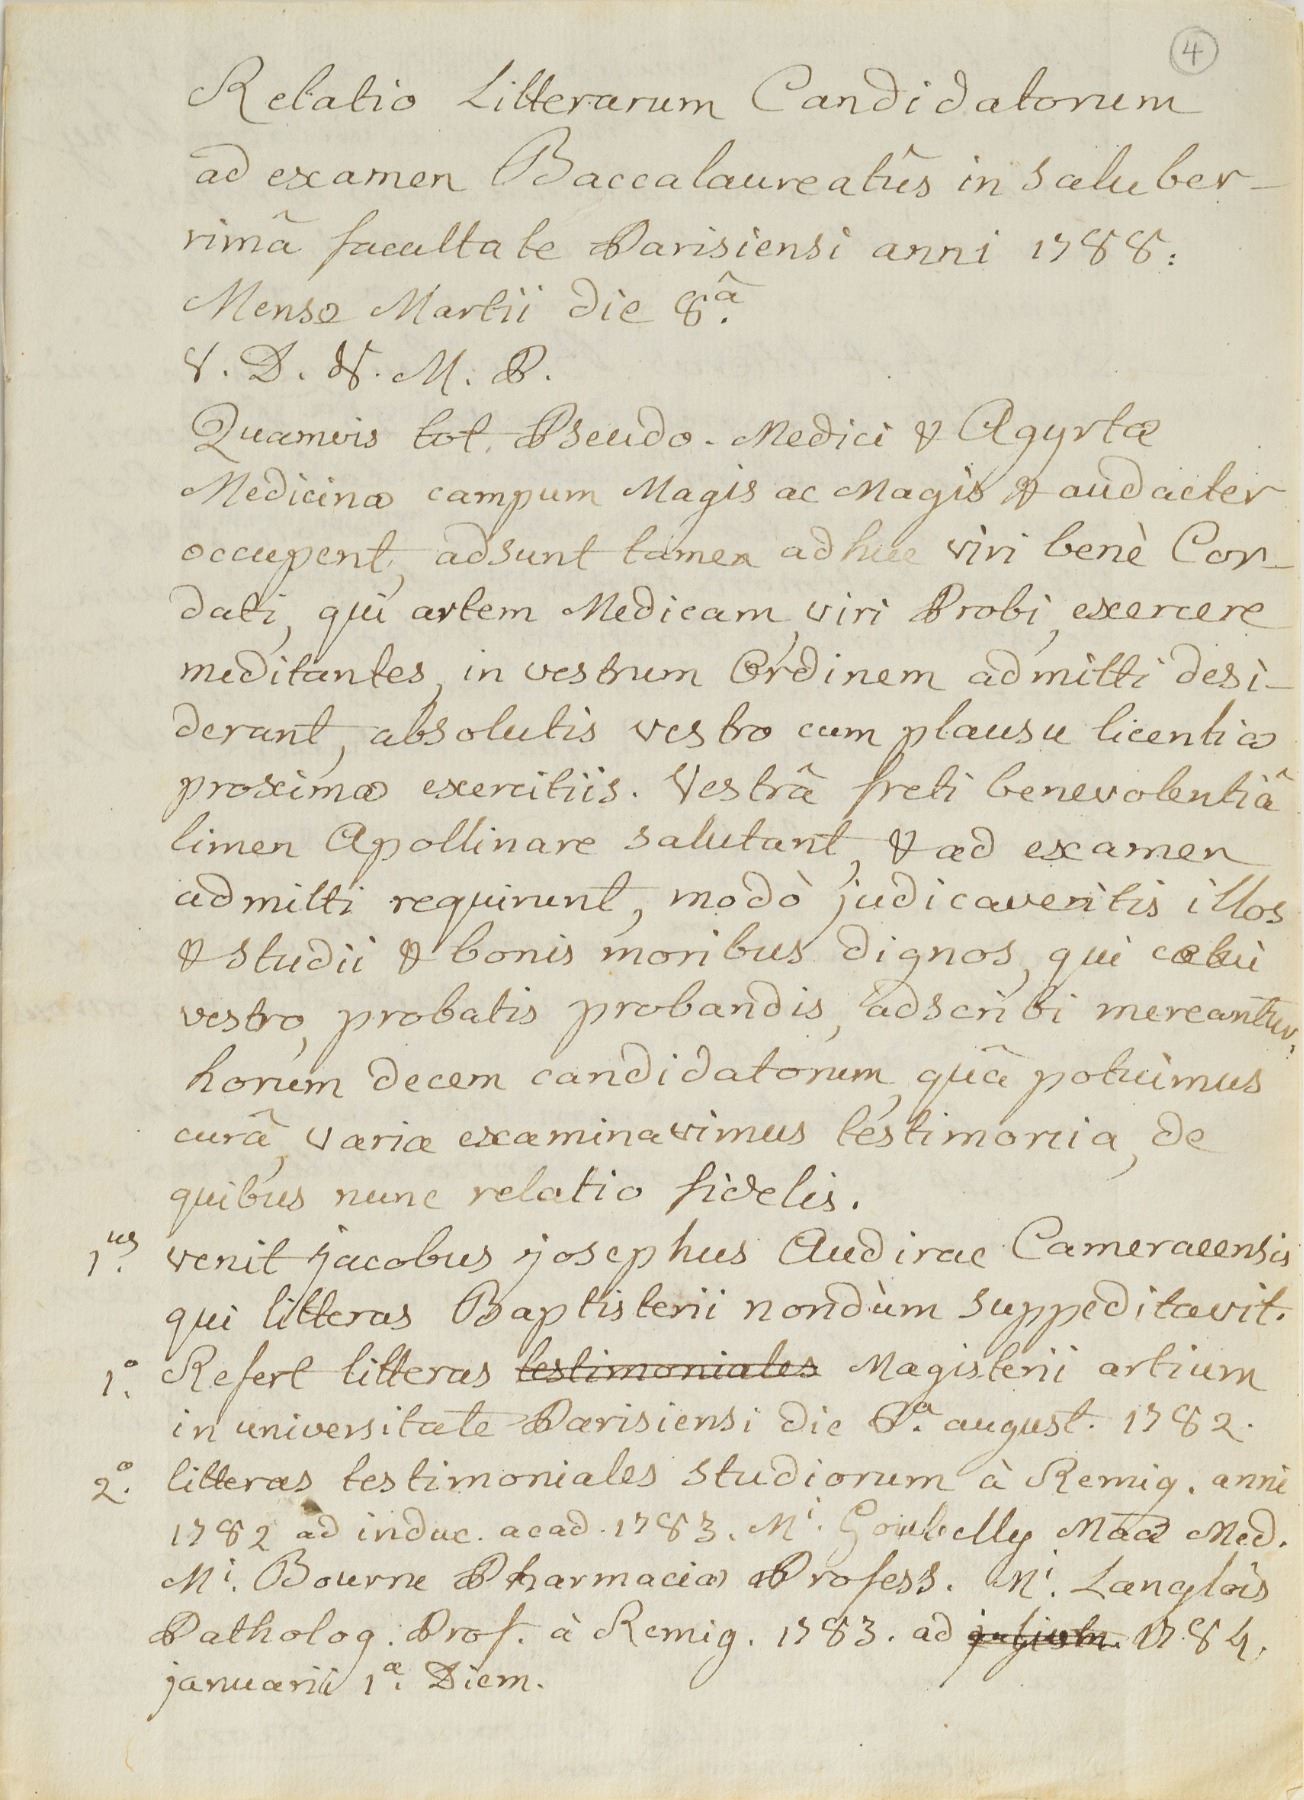 4
Relatio Litterarum Candidatorum
ad examen Baccalaureatûs in saluber-
rimâ facultate Parisiensi anni 1788.
Mense Martii die 8.â
V. D. & M. P.
Quamvis tot Pseudo-Medici & Agyrtæ
Medicinæ campum Magis ac Magis & audacter
occupent, adsunt tamen adhuc viri benè Cor-
dati, qui artem Medicam, viri Probi, exercere
meditantes, in vestrum Ordinem admitti desi-
derant, absolutis vestro cum plausu licentiæ
proximæ exercitiis. Vestrâ freti benevolentiâ
limen Apollinare salutant, & ad examen
admitti requirunt, modò judicaveritis illos
& studii & bonis moribus dignos, qui cœtui
vestro, probatis probandis, adscribi mereantur.
horum decem candidatorum, quâ potuimus
curâ, varia examinavimus testimonia, de
quibus nunc relatio fidelis.
1.us venit jacobus josephus Audirac Cameracensis
qui litteras Baptisterii nondùm suppeditavit.
1.° Refert litteras testimoniales Magisterii artium
in universitate Parisiensi die a. august. 1782.
2.° litteras testimoniales studiorum à Remig. anni
1782 ad induc. acad. 1783. Mi. Goubelly Mad Med.
Mi. Bourne Pharmaciæ Profess. Mi. Langlois
Patholog. Prof. à Remig. 1783. ad 1784.
januarii 1.a Diem.